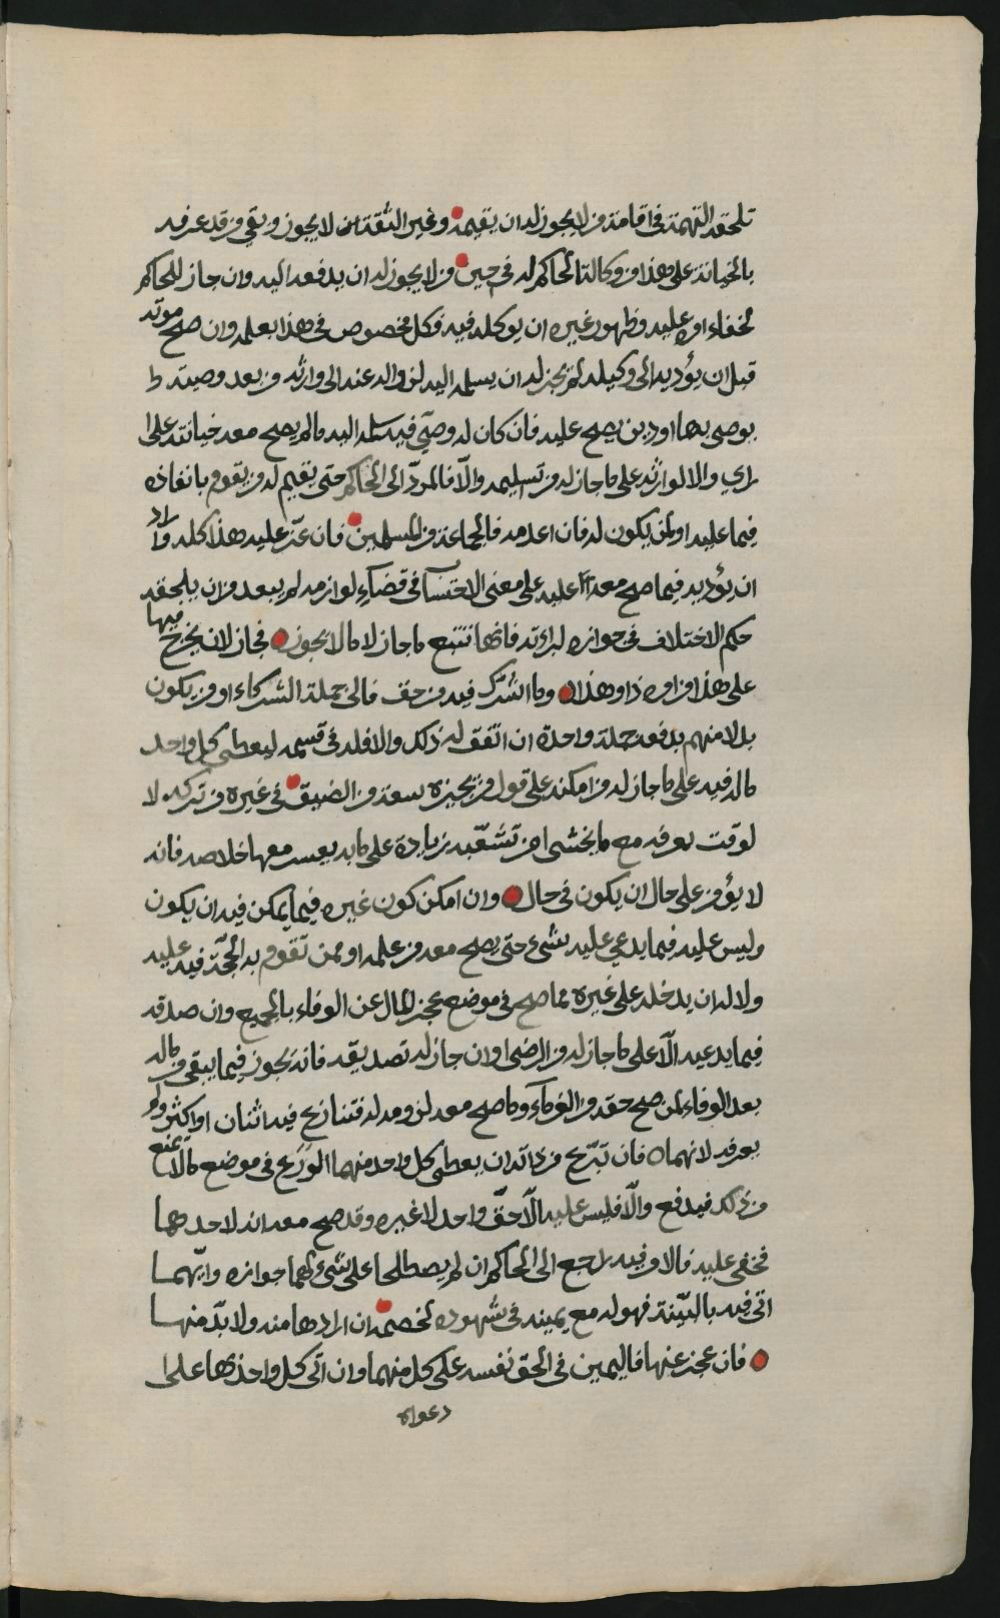 تلحقه التهمة في اقامة من لا يجوز له ان يقيمه وغير الثقة من لا يجوز وبقي من قد عرفه
بالخيانة على هذا من وكالة الحاكم له في حين من لا يجوز له ان يدفعه اليه وان جاز للحاكم
لخفاء امره عليه وظهور غيره ان يوكله فيه وكل مخصوص في هذا بعلمه وان صح موته
قبل ان يؤديه الى وكيله لم يجز له ان يسلمه اليه لزواله عنه الى وارثه من بعد وصيته
يوصى بها او دين يصح عليه فان كان له وصي فيسلمه اليه ما لم يصح معه خيانته على
راي والا لوارثه على ما جاز له من تسليمه والا فالمرد الى الحاكم حتى يقيم له من يقوم بانفاذه
فيما عليه او لمن يكون له فان اعدمه فالجماعة من المسلمين فان عز عليه هذا كله واراد
ان يؤديه فيما صح معه انه عليه على معنى الاحتساب في قضاء لوازمه لم يبعد من ان يلحقه
حكم الاختلاف في جوازه لبراءته فانها تتبع ما جاز لا ما لا يجوز فجاز لان يخرج فيها
على هذا من امره ذا وهذا وما اشترك فيه من حق فالى جملة الشركاء او من يكون
بدلا منهم يدفعه جملة واحدة ان اتفق له ذلك والا فله في قسمه ليعطي كل واحد
ما له فيه على ما جاز له من امكنه على قول من يجيزه سعة من الضيق في غيره من تركه لا
لوقت يعرفه مع ما يخشى من تشعبه بزيادة على ما به يعسر معها خلاصه فانه
لا يؤمن على حال ان يكون في حال وان امكن كون غيره فيما يمكن فيه ان يكون
وليس عليه فيما يدعي عليه بشيء حتى يصح معه من علمه او ممن تقوم به الحجة فيه عليه
ولا له ان يدخله على غيره مما صح في موضع عجز المال عن الوفاء بالجميع وان صدقه
فيما يدعيه الا على ما جاز له من الرضى او ان جاز له تصديقه فانه يجوز فيما يبقى من ماله
بعد الوفاء لمن صح حقه من الغرماء وما صح معه لزومه له فتنازع فيه اثنان او اكثر ولم
يعرفه لايهما فان تبرع من ذاته ان يعطي كل واحد منهما الورع في موضع ما لا يمنع
من ذلك فيدفع والا فليس عليه الا حق واحد لا غيره وقد صح معه انه لاحدهما
فخفي عليه فالامر فيه راجع الى الحاكم ان لم يصطلحا على شيء لهما جوازه وايهما
اتى فيه بالبينة فهو له مع يمينه في شهوده لخصمه ان ارادها منه ولا بد منها
فان عجز عنها فاليمين في الحق نفسه على كل منهما وان اتى كل واحد بها على
دعواه